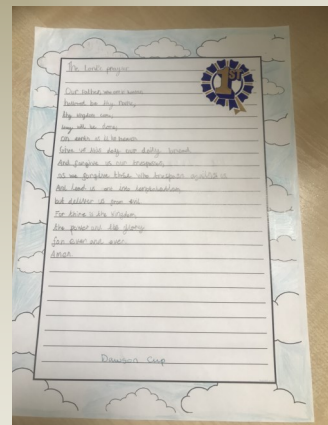 The Lord's prayer
1ST
Our father, who art in heaven
hallowed be thy name,
thy kingdom come,
thy will be done,
on earth as it is in heaven.
Give us this day our daily bread.
And forgive us our trespasses,
as we forgive those who trespass against us
And lead us not into temptation,
but deliver us from evil.
For thine is the kingdom
the power and the glory
for ever and ever.
Amen.
Dawson Cup